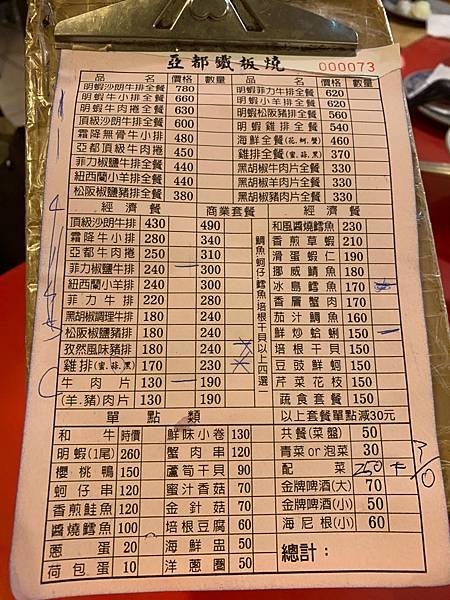 亞都鐵板燒
000073
品 名 價格 數量 品 名 價格 數量
明蝦沙朗牛排全餐 780 明蝦菲力牛排全餐 620
明蝦牛小排全餐 660 明蝦小羊排全餐 620
明蝦牛肉捲全餐 630 明蝦松阪豬排全餐 560
頂級沙朗牛排全餐 600 明蝦雞排全餐 540
霜降無骨牛小排 480 海鮮全餐(花,蚵,蟹) 460
亞都頂級牛肉捲 450 雞排全餐(蜜,蒜,黑) 370
菲力椒鹽牛排全餐 440 黑胡椒牛肉片全餐 330
紐西蘭小羊排全餐 440 黑胡椒羊肉片全餐 330
松阪椒鹽豬排全餐 380 黑胡椒豬肉片全餐 330
經濟餐 商業套餐 經濟餐
頂級沙朗牛排 430 490 和風醬燒鱈魚 230
霜降牛小排 280 340 香煎草蝦 210
亞都牛肉捲 250 310 滑蛋蝦仁 190
菲力椒鹽牛排 240 300 挪威鯖魚 180
紐西蘭小羊排 240 300 冰島鱈魚 170
菲力牛排 220 280 香層蟹肉 170
黑胡椒調理牛排 180 240 茄汁鯛魚 160
松阪椒鹽豬排 180 240 鮮炒蛤蜊 150
孜然風味豬排 180 240 培根干貝 150
雞排(蜜,蒜,黑) 170 230 豆豉鮮蚵 150
牛肉片 130 190 芹菜花枝 150
(羊.豬)肉片 130 190 蔬食套餐 150
鯛魚蚵仔鱈魚培根干貝以上四選一
單點類 以上套餐單點減30元
和牛 時價 鮮味小卷 130 共餐(菜盤) 50
明蝦(1尾) 260 蟹肉串 120 青菜or泡菜 30
櫻桃鴨 150 蘆筍干貝 90 配菜 250 + 30
蚵仔串 120 蜜汁香菇 70 金牌啤酒(大) 70
香煎鮭魚 120 金針菇 70 金牌啤酒(小) 50
醬燒鱈魚 100 培根豆腐 60 海尼根(小) 60
蔥蛋 20 海鮮盅 50 總計:
荷包蛋 10 洋蔥圈 50